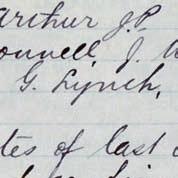 arthur J.P.
onnell, J.
G. Lynch,
tes of last